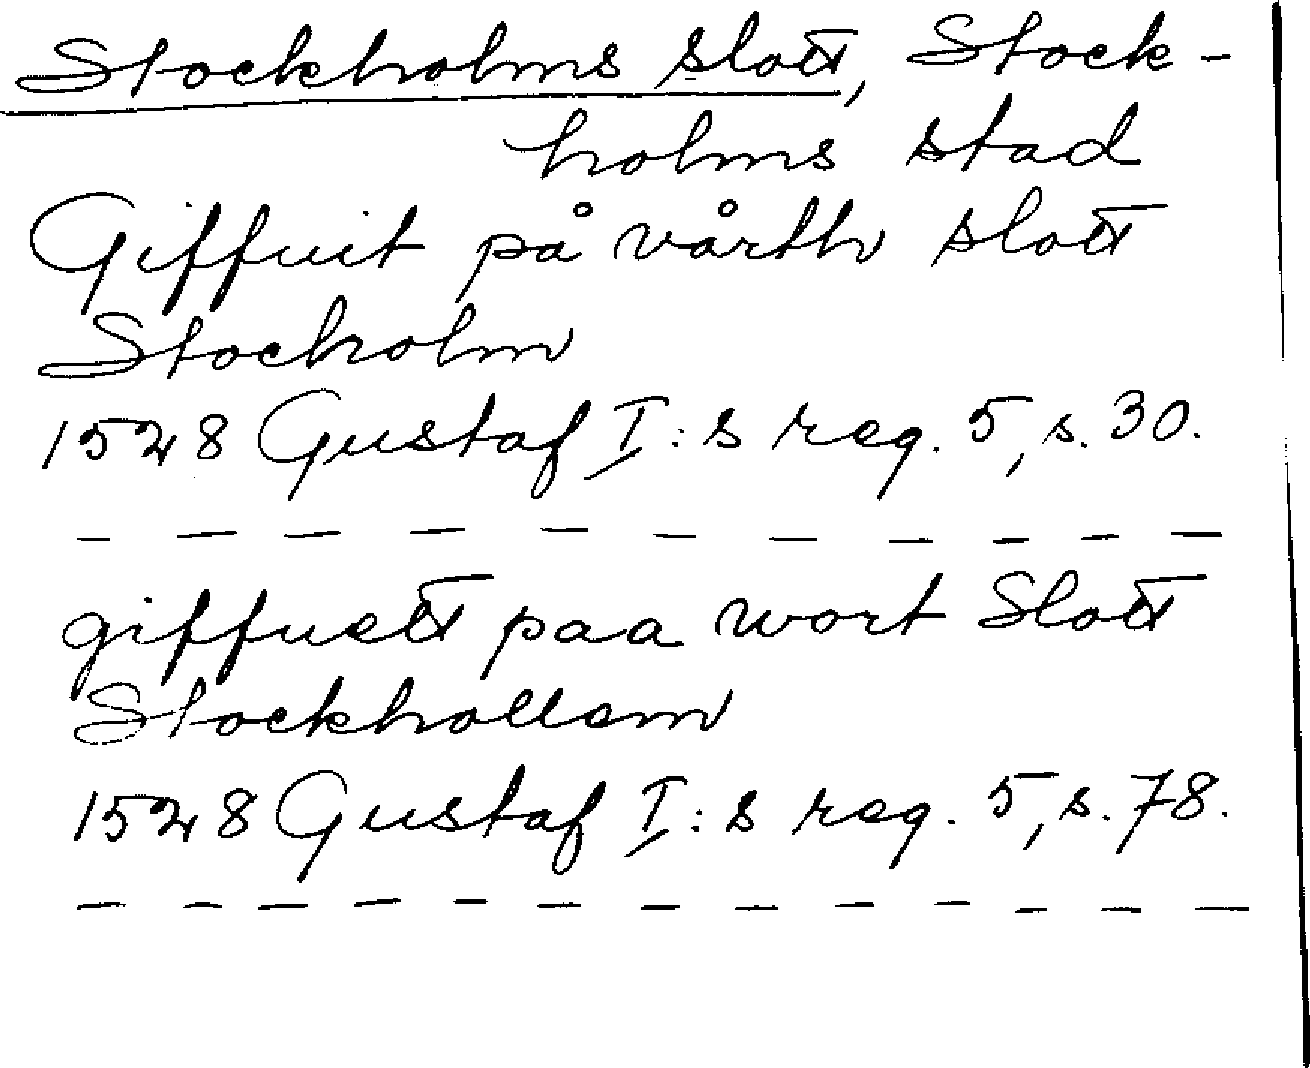 Stockholms slott, Stock-
holms stad
Giffuit på vårth slott
Stocholm
1528 Gustaf I:s reg. 5, s. 30.
– – – – – – – – – – –
giffuett paa wort Slott
Stockhollem
1528 Gustaf I:s reg. 5, s. 78.
– – – – – – – – – – – – –